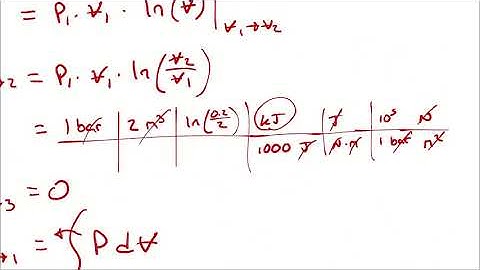 = P₁ · V₁ · ln(V) |V₁→V₂
2 = P₁ · V₁ · ln(V₂/V₁)
= 1 bar | 2 m³ | ln(0.2/2) | kJ | J | 10⁵ N
1000 J | N·m | 1 bar | m²
3 = 0
1 = ∫ P dV